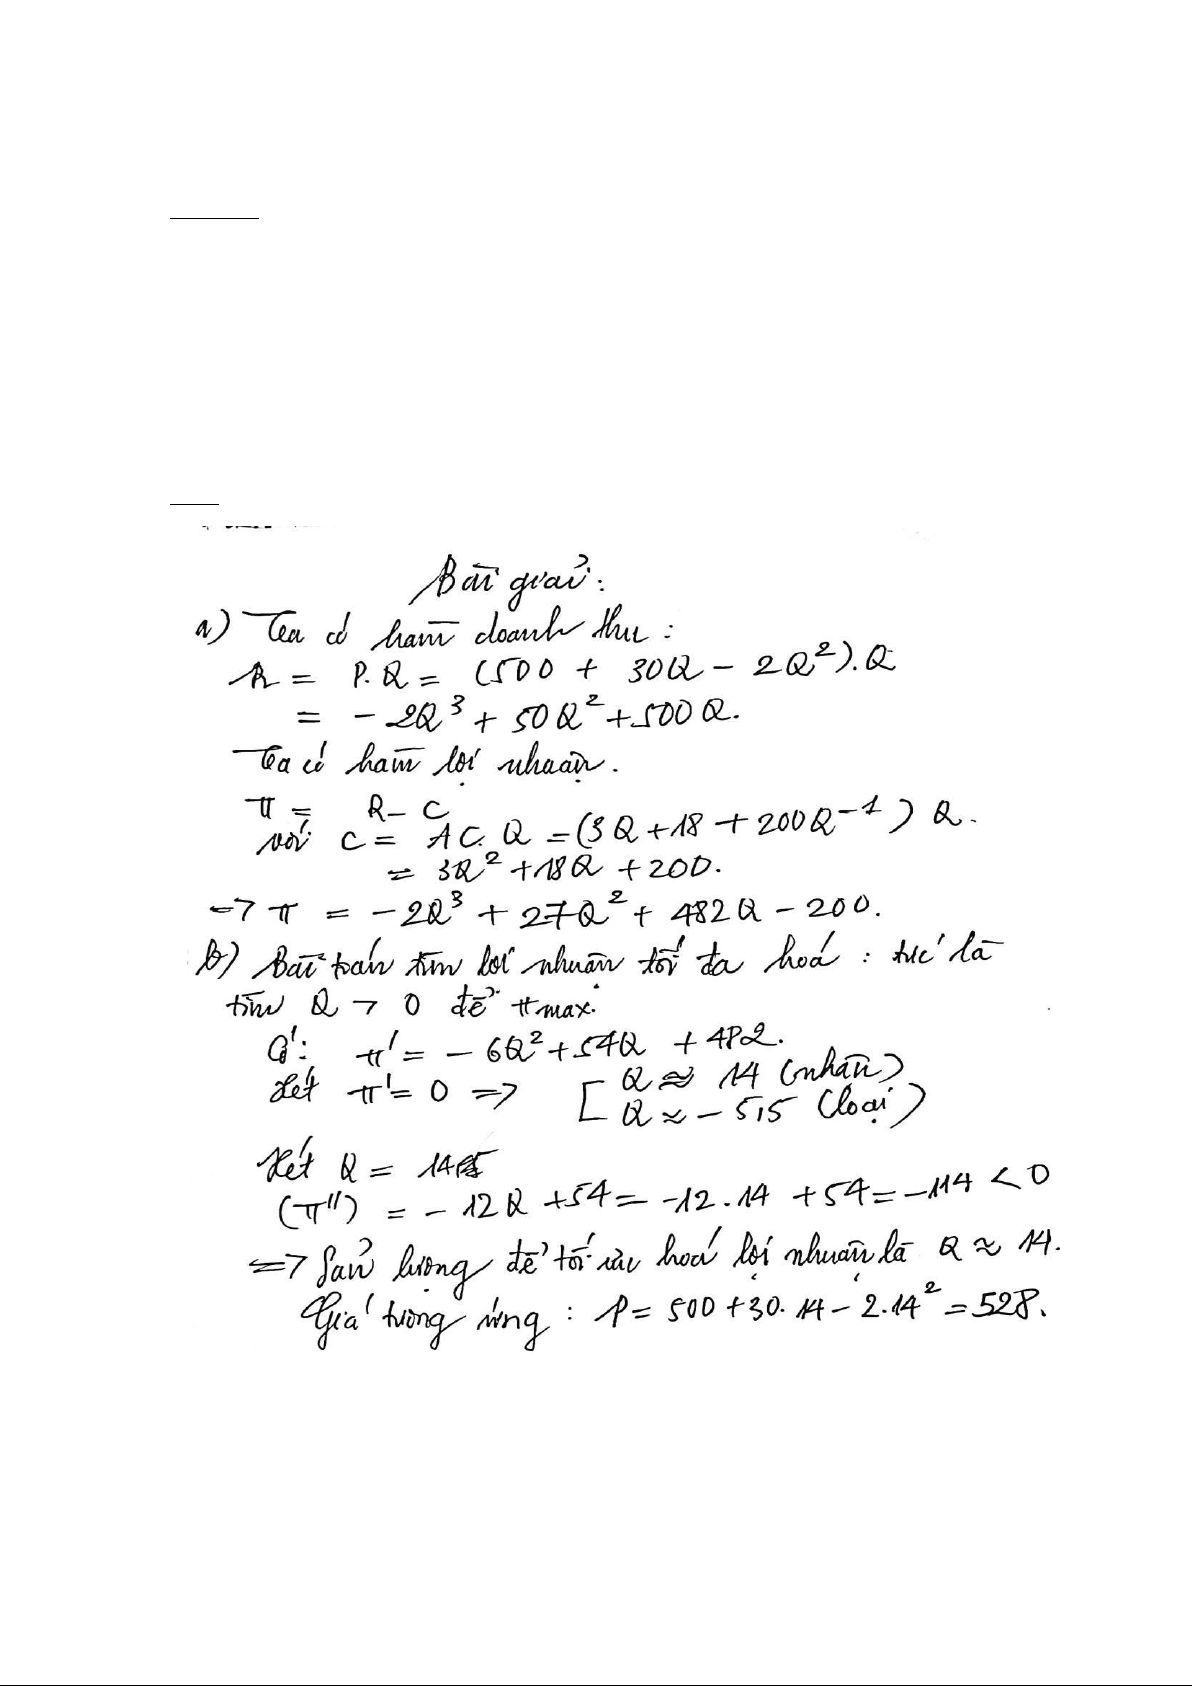 Bài giải:
a) Ta có hàm doanh thu :
R = P.Q = (500 + 30Q - 2Q²).Q
= -2Q³ + 50Q² + 500Q.
Ta có hàm lợi nhuận.
π = R - C
với C = AC.Q = (3Q + 18 + 200Q⁻¹) Q.
= 3Q² + 18Q + 200.
=> π = -2Q³ + 27Q² + 482Q - 200.
b) Bài toán tìm lợi nhuận tối đa hoá : tức là
tìm Q > 0 để πmax.
G': π' = -6Q² + 54Q + 482.
Xét π' = 0 => [ Q ≈ 14 (nhận)
Q ≈ -5,5 (loại)
Xét Q = 14
(π'') = -12Q + 54 = -12.14 + 54 = -114 < 0
=> Sản lượng để tối ưu hoá lợi nhuận là Q ≈ 14.
Giá tương ứng : P = 500 + 30.14 - 2.14² = 528.